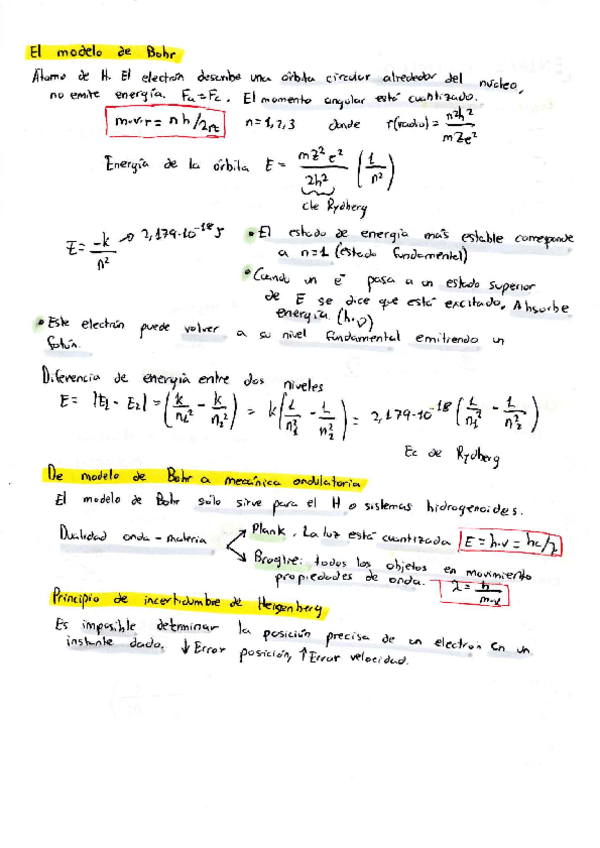 El modelo de Bohr
Átomo de H. El electrón describe una órbita circular alrededor del núcleo,
no emite energía. Fa = Fc. El momento angular está cuantizado.
m·v·r = nh/2π n = 1, 2, 3 donde r(radio) = n²h²/mZe²
Energía de la órbita E = mZ²e²/2h² (1/n²)
cte Rydberg
E = -k/n² → 2,179·10⁻¹⁸ J
• El estado de energía más estable corresponde
a n=1 (estado fundamental)
• Cuando un e⁻ pasa a un estado superior
de E se dice que está excitado. Absorbe
energía (h·ν)
• Este electrón puede volver a su nivel fundamental emitiendo un
fotón.
Diferencia de energía entre dos niveles
E = |E₁ - E₂| = (k/n₁² - k/n₂²) = k(1/n₁² - 1/n₂²) = 2,179·10⁻¹⁸ (1/n₁² - 1/n₂²)
Ec de Rydberg
De modelo de Bohr a mecánica ondulatoria
El modelo de Bohr sólo sirve para el H o sistemas hidrogenoides.
Dualidad onda-materia
Plank. La luz está cuantizada E = h·ν = hc/λ
Broglie: todos los objetos en movimiento
propiedades de onda. λ = h/m·v
Principio de incertidumbre de Heigenberg
Es imposible determinar la posición precisa de un electrón en un
instante dado. ↓ Error posición, ↑ Error velocidad.